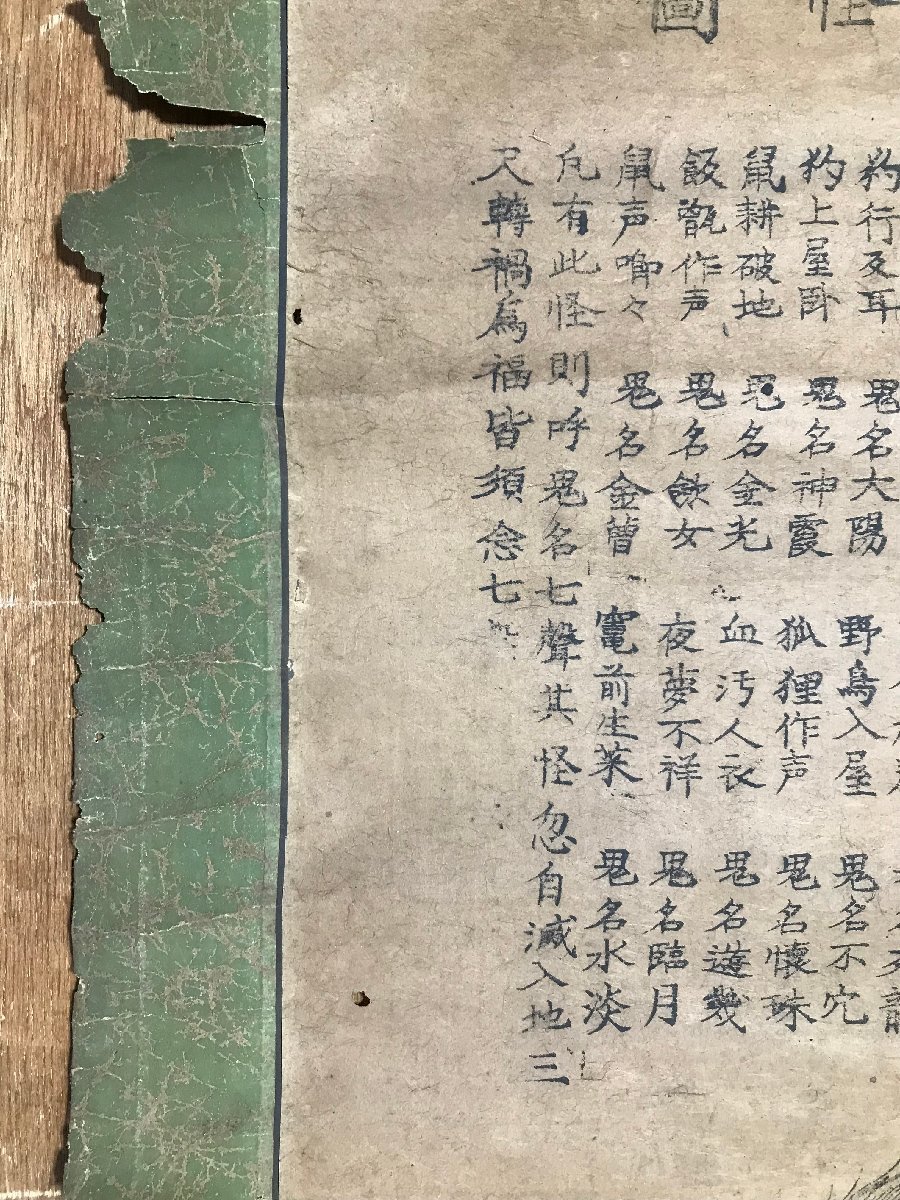 怪
圖
狗行反耳 鬼名大陽 野鳥入屋 鬼名不穴
狗上屋卧 鬼名神霞 狐狸作声 鬼名懐珠
鼠耕破地 鬼名金光 血汚人衣 鬼名遊幾
飯甑作声 鬼名歛女 夜夢不祥 鬼名臨月
鼠声喞々 鬼名金曹 竈前生菜 鬼名水淡
凡有此怪則呼鬼名七聲其怪忽自滅入地三
尺轉禍為福皆須念七